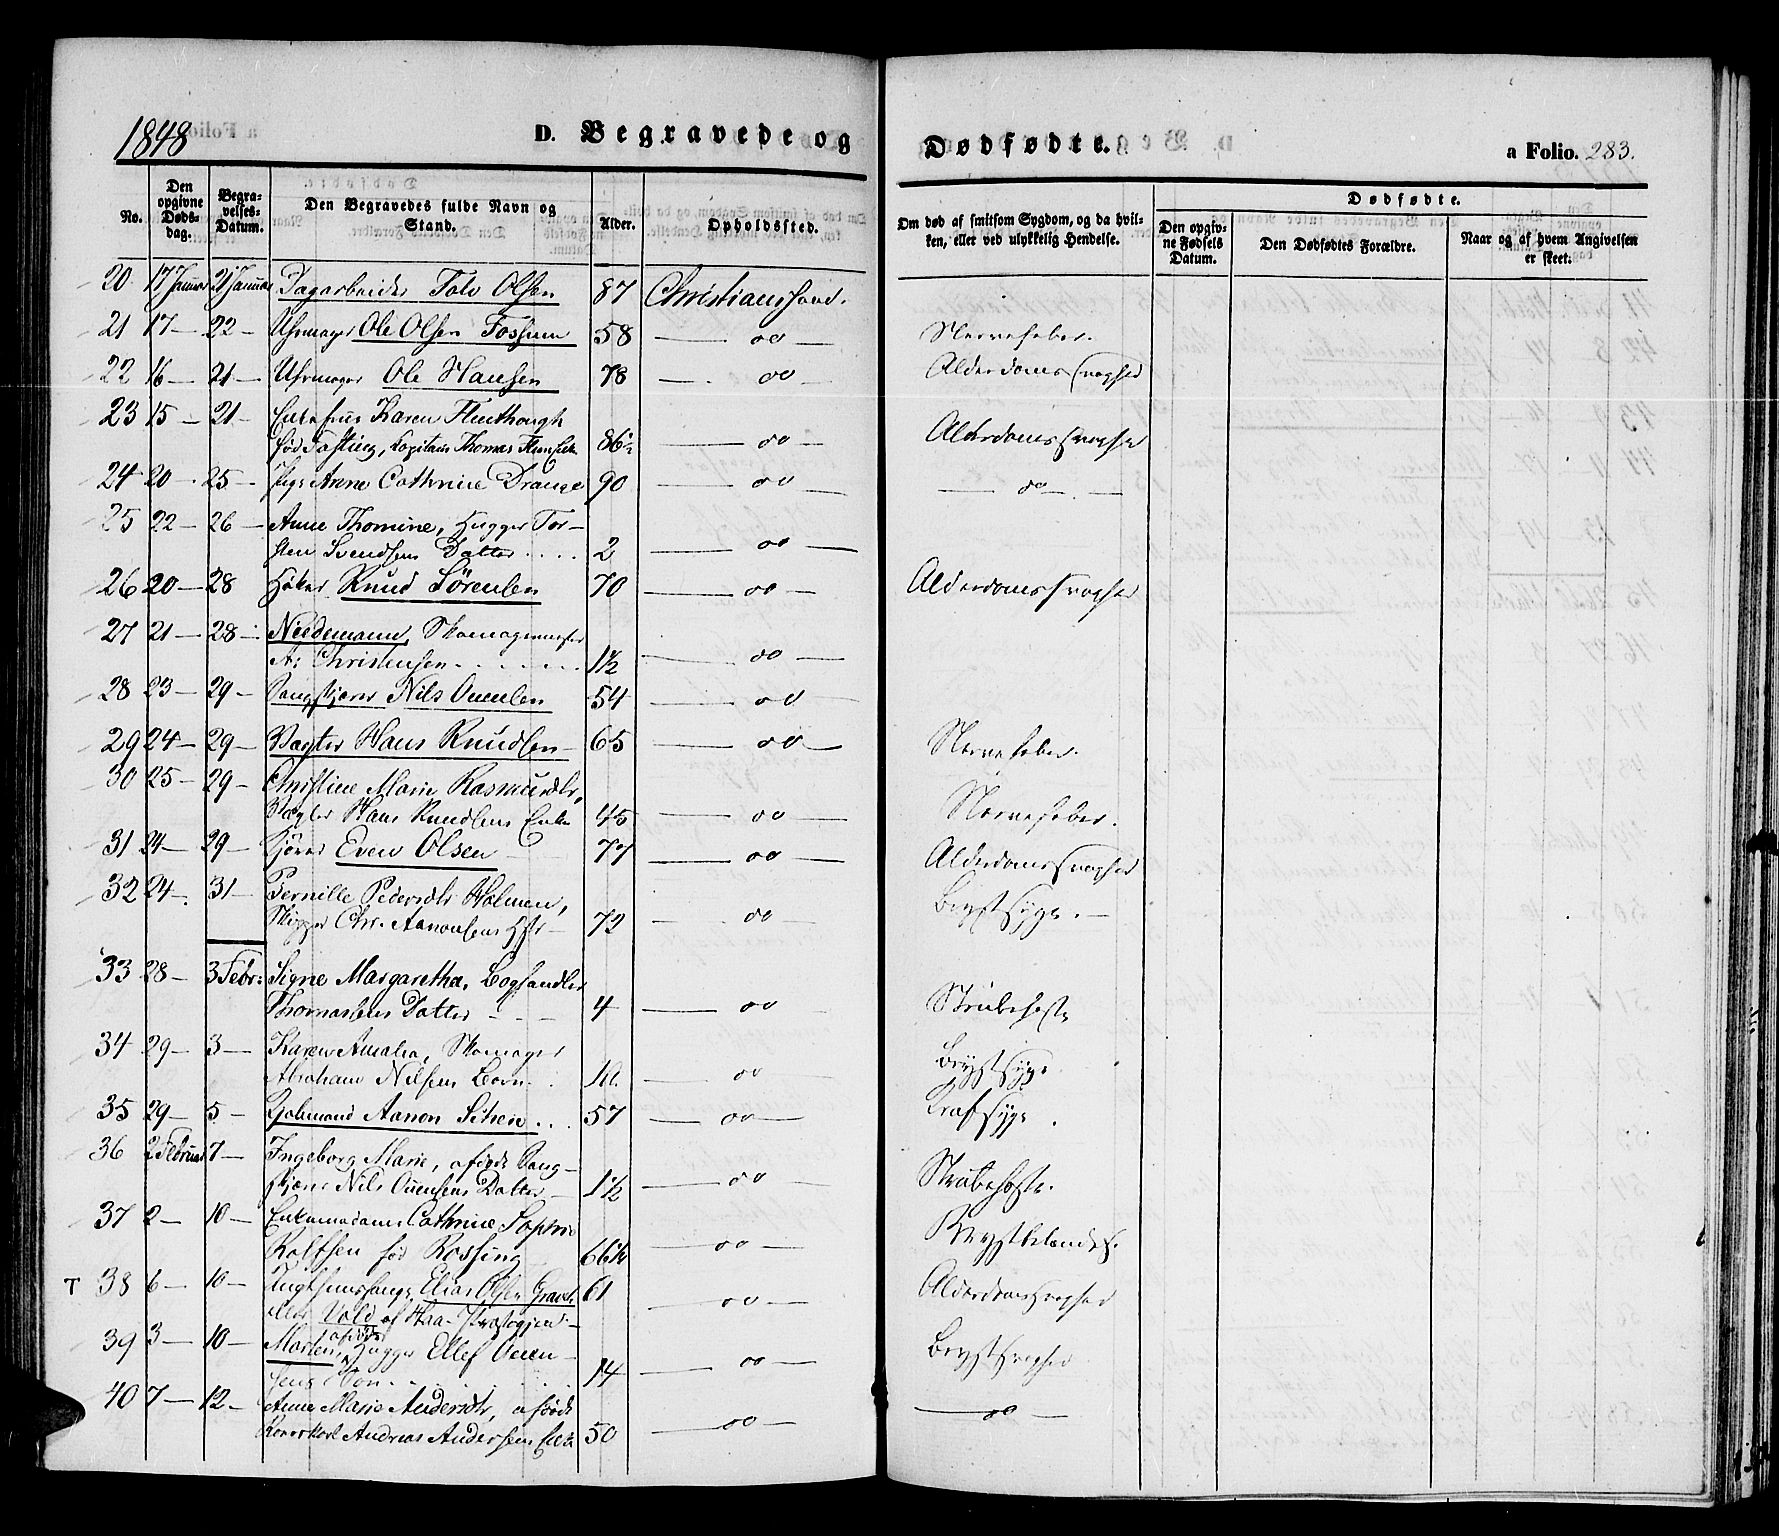 1848
D. Begravede og Dødfødte.
a Folio. 283.
No.
Den opgivne Døds-dag.
Begra-velses-Datum.
Den Begravedes fulde Navn og Stand.
Alder.
Opholdssted.
Om død af smitsom Sygdom, og da hvil-ken, eller ved ulykkelig Hendelse.
Dødfødte.
Den opgiv-ne Fødsels Datum.
Den Dødfødtes Forældre.
Naar og af hvem Angivelsen er skeet.
20 17 Januar 21 Januar Dagarbeider Tolv Olsen 87 Christianssand.
21 17 — 22 — Uhrmager Ole Olsen Fossum 58 — oo — Nervefeber.
22 16 — 21 — Uhrmager Ole Hansen 78 — oo — Alderdomssvaghed
23 15 — 21 — Enkefrue Karen
fød Fasting, Kapitain Thomas 86½ — oo — Alderdomssvaghed
24 20 — 25 — Pige Anne Cathrine Drange 90 — oo — — oo —
25 22 — 26 — Anne Thomine, Hugger Tor-
sten Svendsens Datter . . . . 2 — oo —
26 20 — 28 Høker Knud Sörensen 70 — oo — Alderdomssvaghed
27 21 — 28 — Skomagermester
A: Christensen . . . . 1½ — oo —
28 23 — 29 — Nils Ouensen 54 — oo —
29 24 — 29 — Vægter Hans Knudsen 65 — oo — Nervefeber.
30 25 — 29 — Christine Marie Rasmusdtr,
Vægter Hans Knudsens Enke 45 — oo — Nervefeber.
31 24 — 29 — Kjører Even Olsen 77 — oo — Alderdomssvaghed
32 24 — 31 — Pernille Pedersdtr Holmen,
Chr. Aanonsens Hstr — 72 — oo — Brystsyge. —
33 28 — 3 Febr: Signe Margaretha, Boghandler
Thomasens Datter — 4 — oo — Strubehoste
34 29 — 3 — Karen Amalia, Skomager
Abraham Nilsens Barn . . — oo — Brystsyge
35 29 — 5 — Aanon . . . 57 — oo —
36 2 Februar 7 — Ingeborg Marie, afdøde
Nils Ouensens Datter — 1½ — oo — Strubehoste.
37 2 — 10 — Enkemadame Cathrine Sophie
Rolfsen fød Rossing 66½ — oo —
T 38 6 — 10 — Tugthuusfange Elias Olsen 61
eller Vold af Haa Præstegjeld — — oo — Alderdomssvaghed
39 3 — 10 — Morten, afdøde Hugger Ellef Ouen-
sens Søn . . . 14 — oo — Brystsvaghed
40 7 — 12 — Anne Marie Andersdtr, afdøde
Andreas Andersens Enke 50 — oo — — oo —